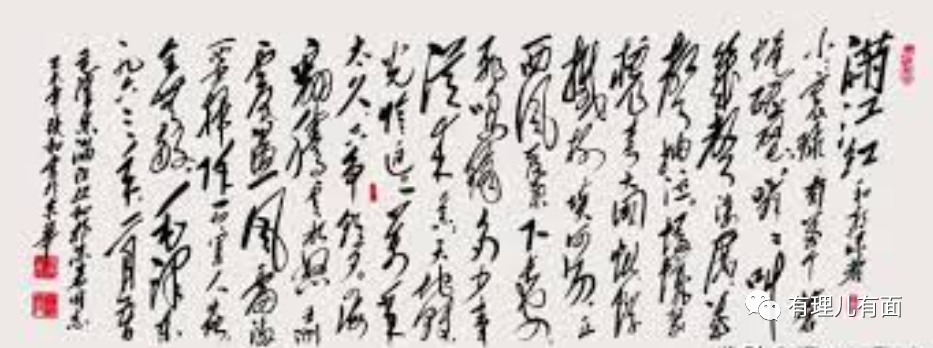 满江红 和郭沫若
小小寰球有几个苍
蝇碰壁嗡嗡叫
几声凄厉几
声抽泣蚂蚁缘
槐夸大国蚍蜉
撼树谈何易正
西风落叶下长安
飞鸣镝多少事
从来急天地转
光阴迫一万年
太久只争朝夕四海
翻腾云水怒五洲
震荡风雷激
要扫除一切害人虫
全无敌 毛泽东
一九六三年一月九日
毛泽东满江红和郭沫若同志
书于京华
有理儿有面